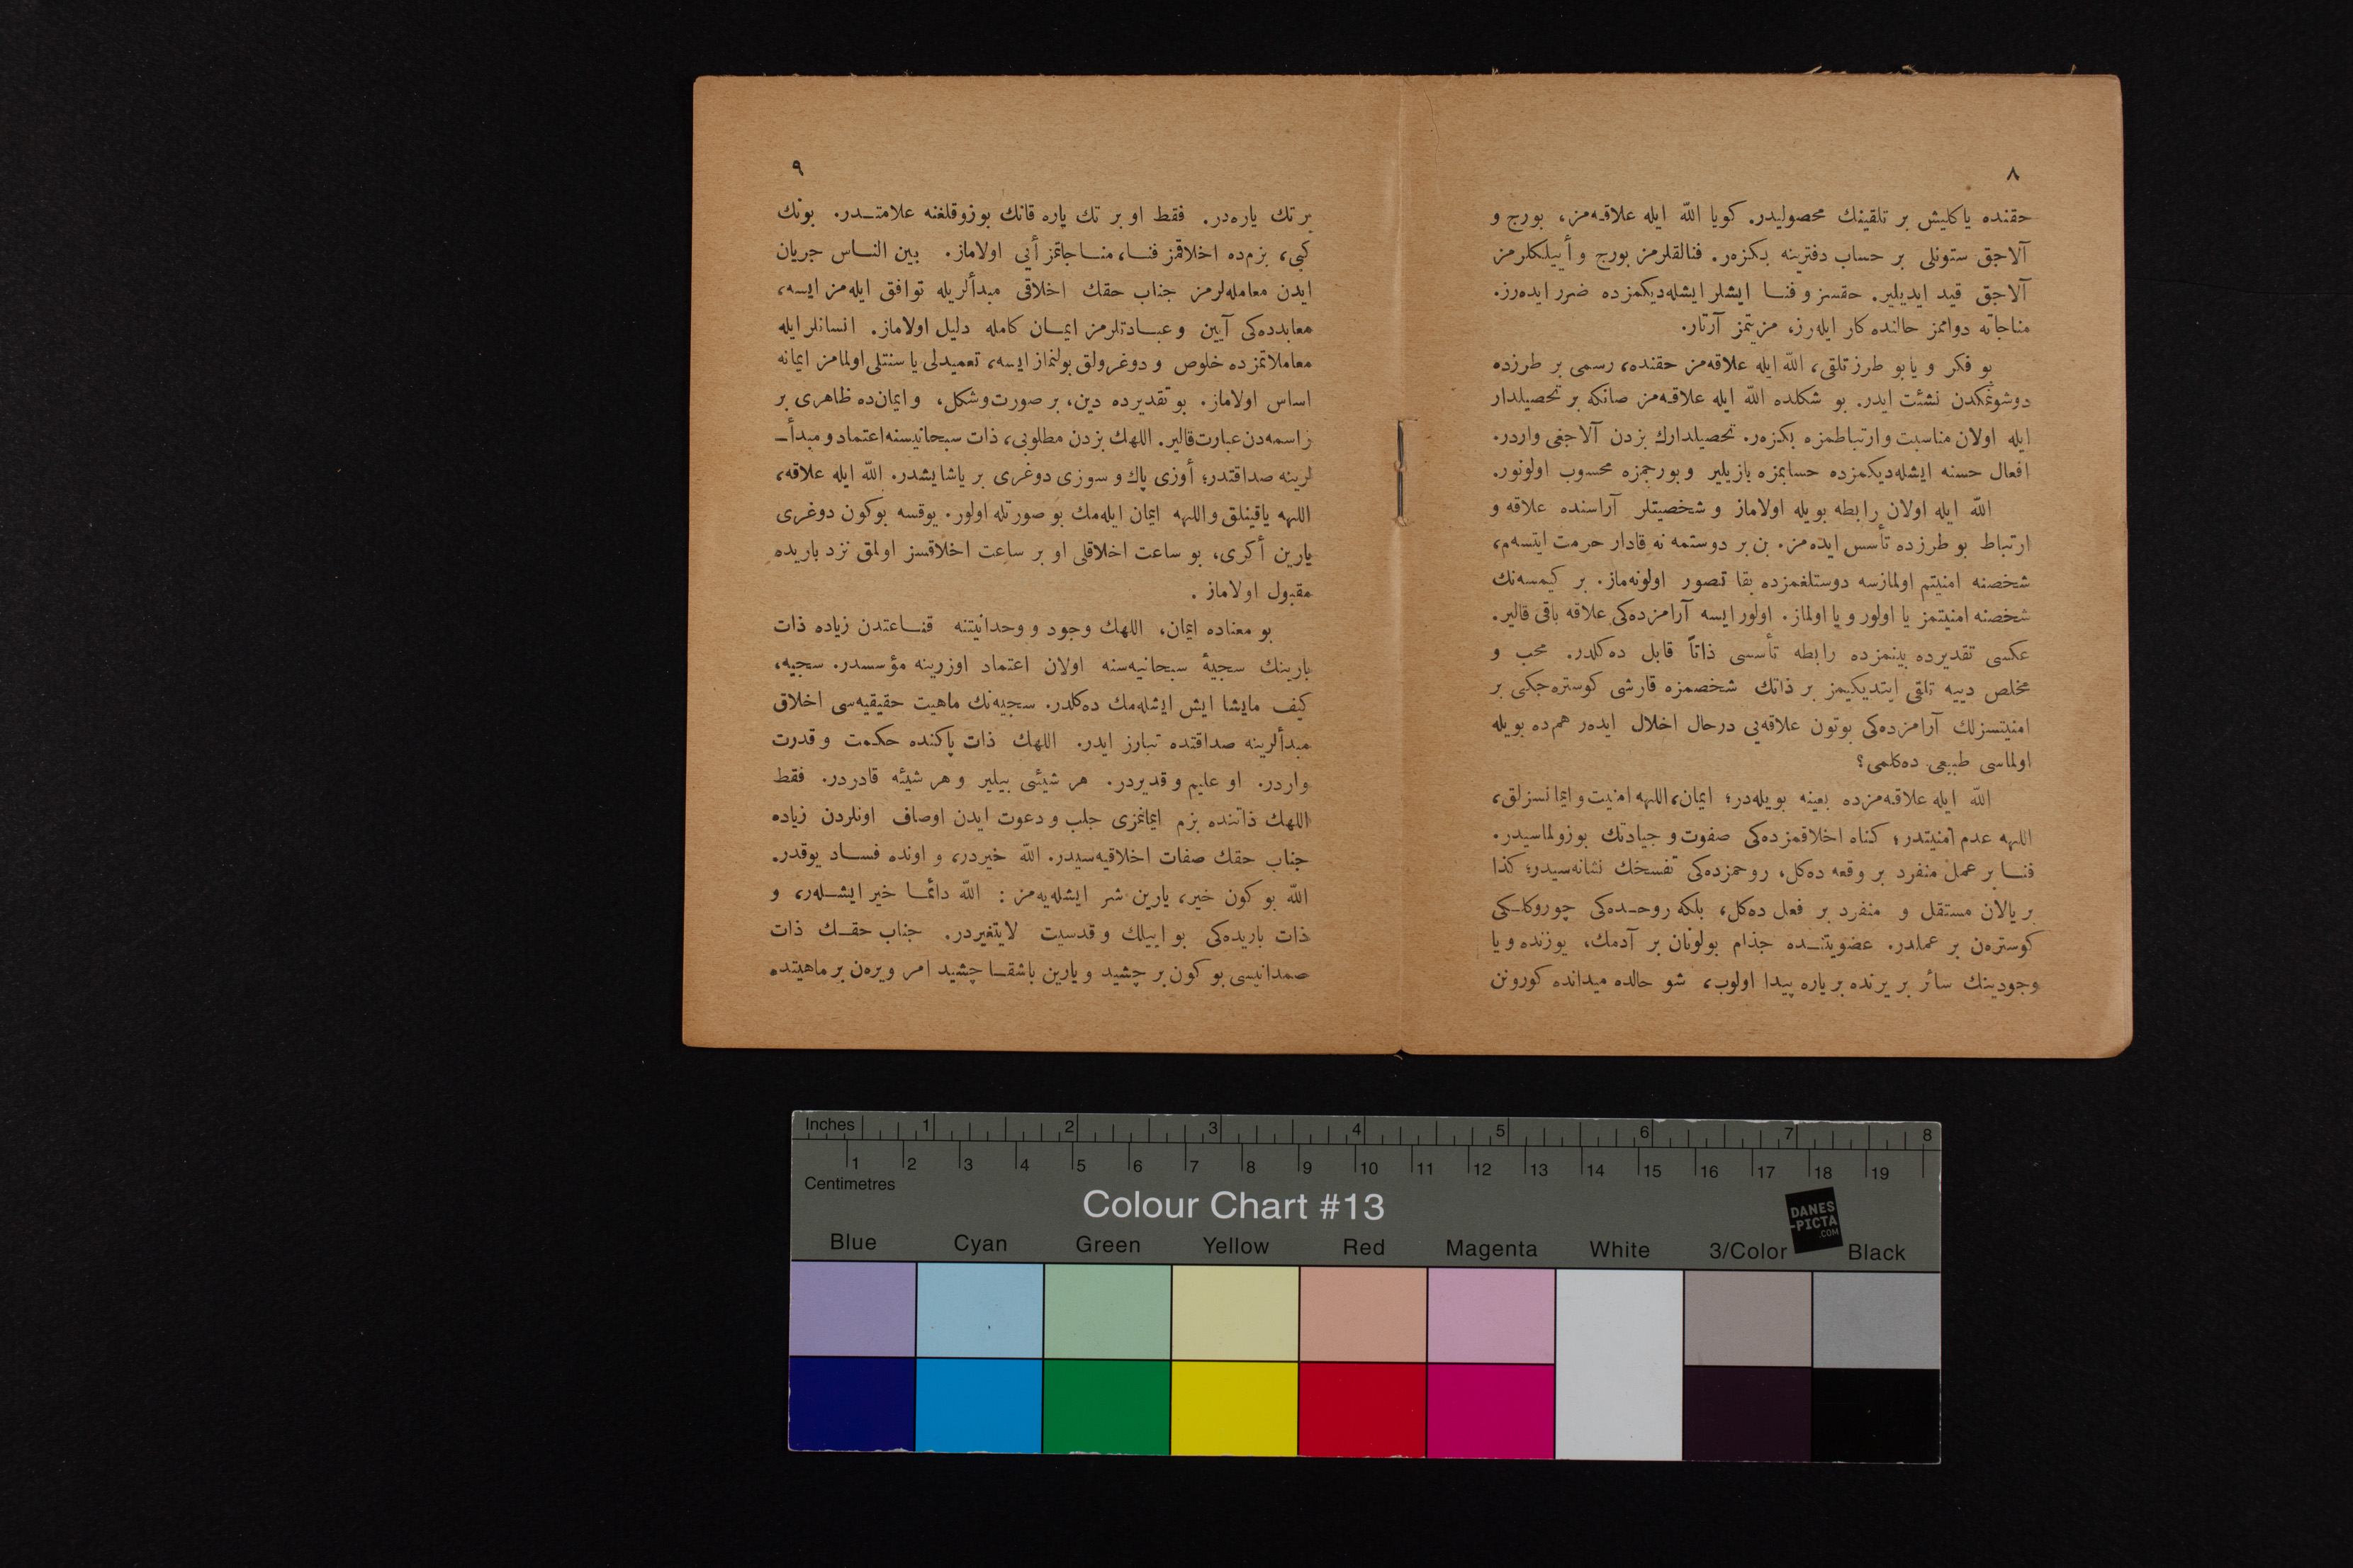 ٨
حقنده ياكليش بر تلقينك محصوليدر. كويا اللّه ايله علاقه‌مز، بورج و
آلاجق ستونلى بر حساب دفترينه بكزه‌ر. فنالقلرمز بورج و أييلكلرمز
آلاجق قيد ايديلير. حقسز و فنا ايشلر ايشله‌ديكمزده ضرر ايده‌رز.
مناجاته دواممز حالنده كار ايله‌رز، مزيتمز آرتار.
بو فكر و يا بو طرز تلقى، اللّه ايله علاقه‌مز حقنده، رسمى بر طرزده
دوشونمكدن نشئت ايدر. بو شكلده اللّه ايله علاقه‌مز صانكه بر تحصيلدار
ايله اولان مناسبت و ارتباطمزه بكزه‌ر. تحصيلدارك بزدن آلاجغى واردر.
افعال حسنه ايشله‌ديكمزده حسابمزه يازيلير و بورجمزه محسوب اولونور.
اللّه ايله اولان رابطه بويله اولاماز و شخصيتلر آراسنده علاقه و
ارتباط بو طرزده تأسس ايده‌مز. بن بر دوستمه نه قادار حرمت ايتسه‌م،
شخصنه امنيتم اولمازسه دوستلغمزده بقا تصور اولونه‌ماز. بر كيمسه‌نك
شخصنه امنيتمز يا اولور و يا اولماز. اولور ايسه آرامزده‌كى علاقه باقى قالير.
عكسى تقديرده بينمزده رابطه تأسسى ذاتاً قابل ده‌كلدر. محب و
مخلص دييه تلقى ايتديكيمز بر ذاتك شخصمزه قارشى كوستره‌جكى بر
امنيتسزلك آرامزده‌كى بوتون علاقه‌يى درحال اخلال ايده‌ر هم‌ده بويله
اولماسى طبيعى ده‌كلمى؟
اللّه ايله علاقه‌مزده بعينه بويله‌در؛ ايمان، اللهه امنيت و ايمانسزلق،
اللهه عدم امنيتدر؛ كناه اخلاقمزده‌كى صفوت و جيادتك بوزولماسيدر.
فنا بر عمل منفرد بر وقعه ده‌كل، روحمزده‌كى تفسخك نشانه‌سيدر؛ كذا
بر يالان مستقل و منفرد بر فعل ده‌كل، بلكه روحده‌كى چوروكلكى
كوستره‌ن بر عملدر. عضويتنده جذام بولونان بر آدمك، يوزنده و يا
وجودينك سائر بر يرنده بر ياره پيدا اولوب، شو حالده ميدانده كورونن
٩
بر تك ياره‌در. فقط او بر تك ياره قانك بوزوقلغنه علامتدر. بونك
كبى، بزم‌ده اخلاقمز فنا، مناجاتمز أيى اولاماز. بين الناس جريان
ايدن معامله‌لرمز جناب حقك اخلاقى مبدألريله توافق ايله‌مز ايسه،
معابدده‌كى آيين و عبادتلرمز ايمان كامله دليل اولاماز. انسانلر ايله
معاملاتمزده خلوص و دوغرولق بولنماز ايسه، تعميدلى يا سنتلى اولمامز ايمانه
اساس اولاماز. بو تقديرده دين، بر صورت و شكل، و ايمان‌ده ظاهرى بر
راسمه‌دن عبارت قالير. اللهك بزدن مطلوبى، ذات سبحانيسنه اعتماد و مبدأ‌ـ
لرينه صداقتدر؛ أوزى پاك و سوزى دوغرى بر ياشايشدر. اللّه ايله علاقه،
اللهه ياقينلق و اللهه ايمان ايله‌مك بو صورتله اولور. يوقسه بوكون دوغرى
يارين أكرى، بو ساعت اخلاقلى او بر ساعت اخلاقسز اولمق نزد باريده
مقبول اولاماز.
بو معناده ايمان، اللهك وجود و وحدانيتنه قناعتدن زياده ذات
بارينك سجيۀ سبحانيه‌سنه اولان اعتماد اوزرينه مؤسسدر. سجيه،
كيف مايشا ايش ايشله‌مك ده‌كلدر. سجيه‌نك ماهيت حقيقيه‌سى اخلاق
مبدألرينه صداقتده تبارز ايدر. اللهك ذات پاكنده حكمت و قدرت
واردر. او عليم و قديردر. هر شيئى بيلير و هر شيئه قادردر. فقط
اللهك ذاتنده بزم ايمانمزى جلب و دعوت ايدن اوصاف اونلردن زياده
جناب حقك صفات اخلاقيه‌سيدر. اللّه خيردر، و اونده فساد يوقدر.
اللّه بو كون خير، يارين شر ايشله‌يه‌مز : اللّه دائما خير ايشله‌ر، و
ذات باريده‌كى بو اييلك و قدسيت لايتغيردر. جناب حقك ذات
صمدانيسى بو كون بر چشيد و يارين باشقا چشيد امر ويره‌ن بر ماهيتده
Inches 1 2 3 4 5 6 7 8
1 2 3 4 5 6 7 8 9 10 11 12 13 14 15 16 17 18 19
Centimetres
Colour Chart #13
DANES
-PICTA
.COM
Blue Cyan Green Yellow Red Magenta White 3/Color Black